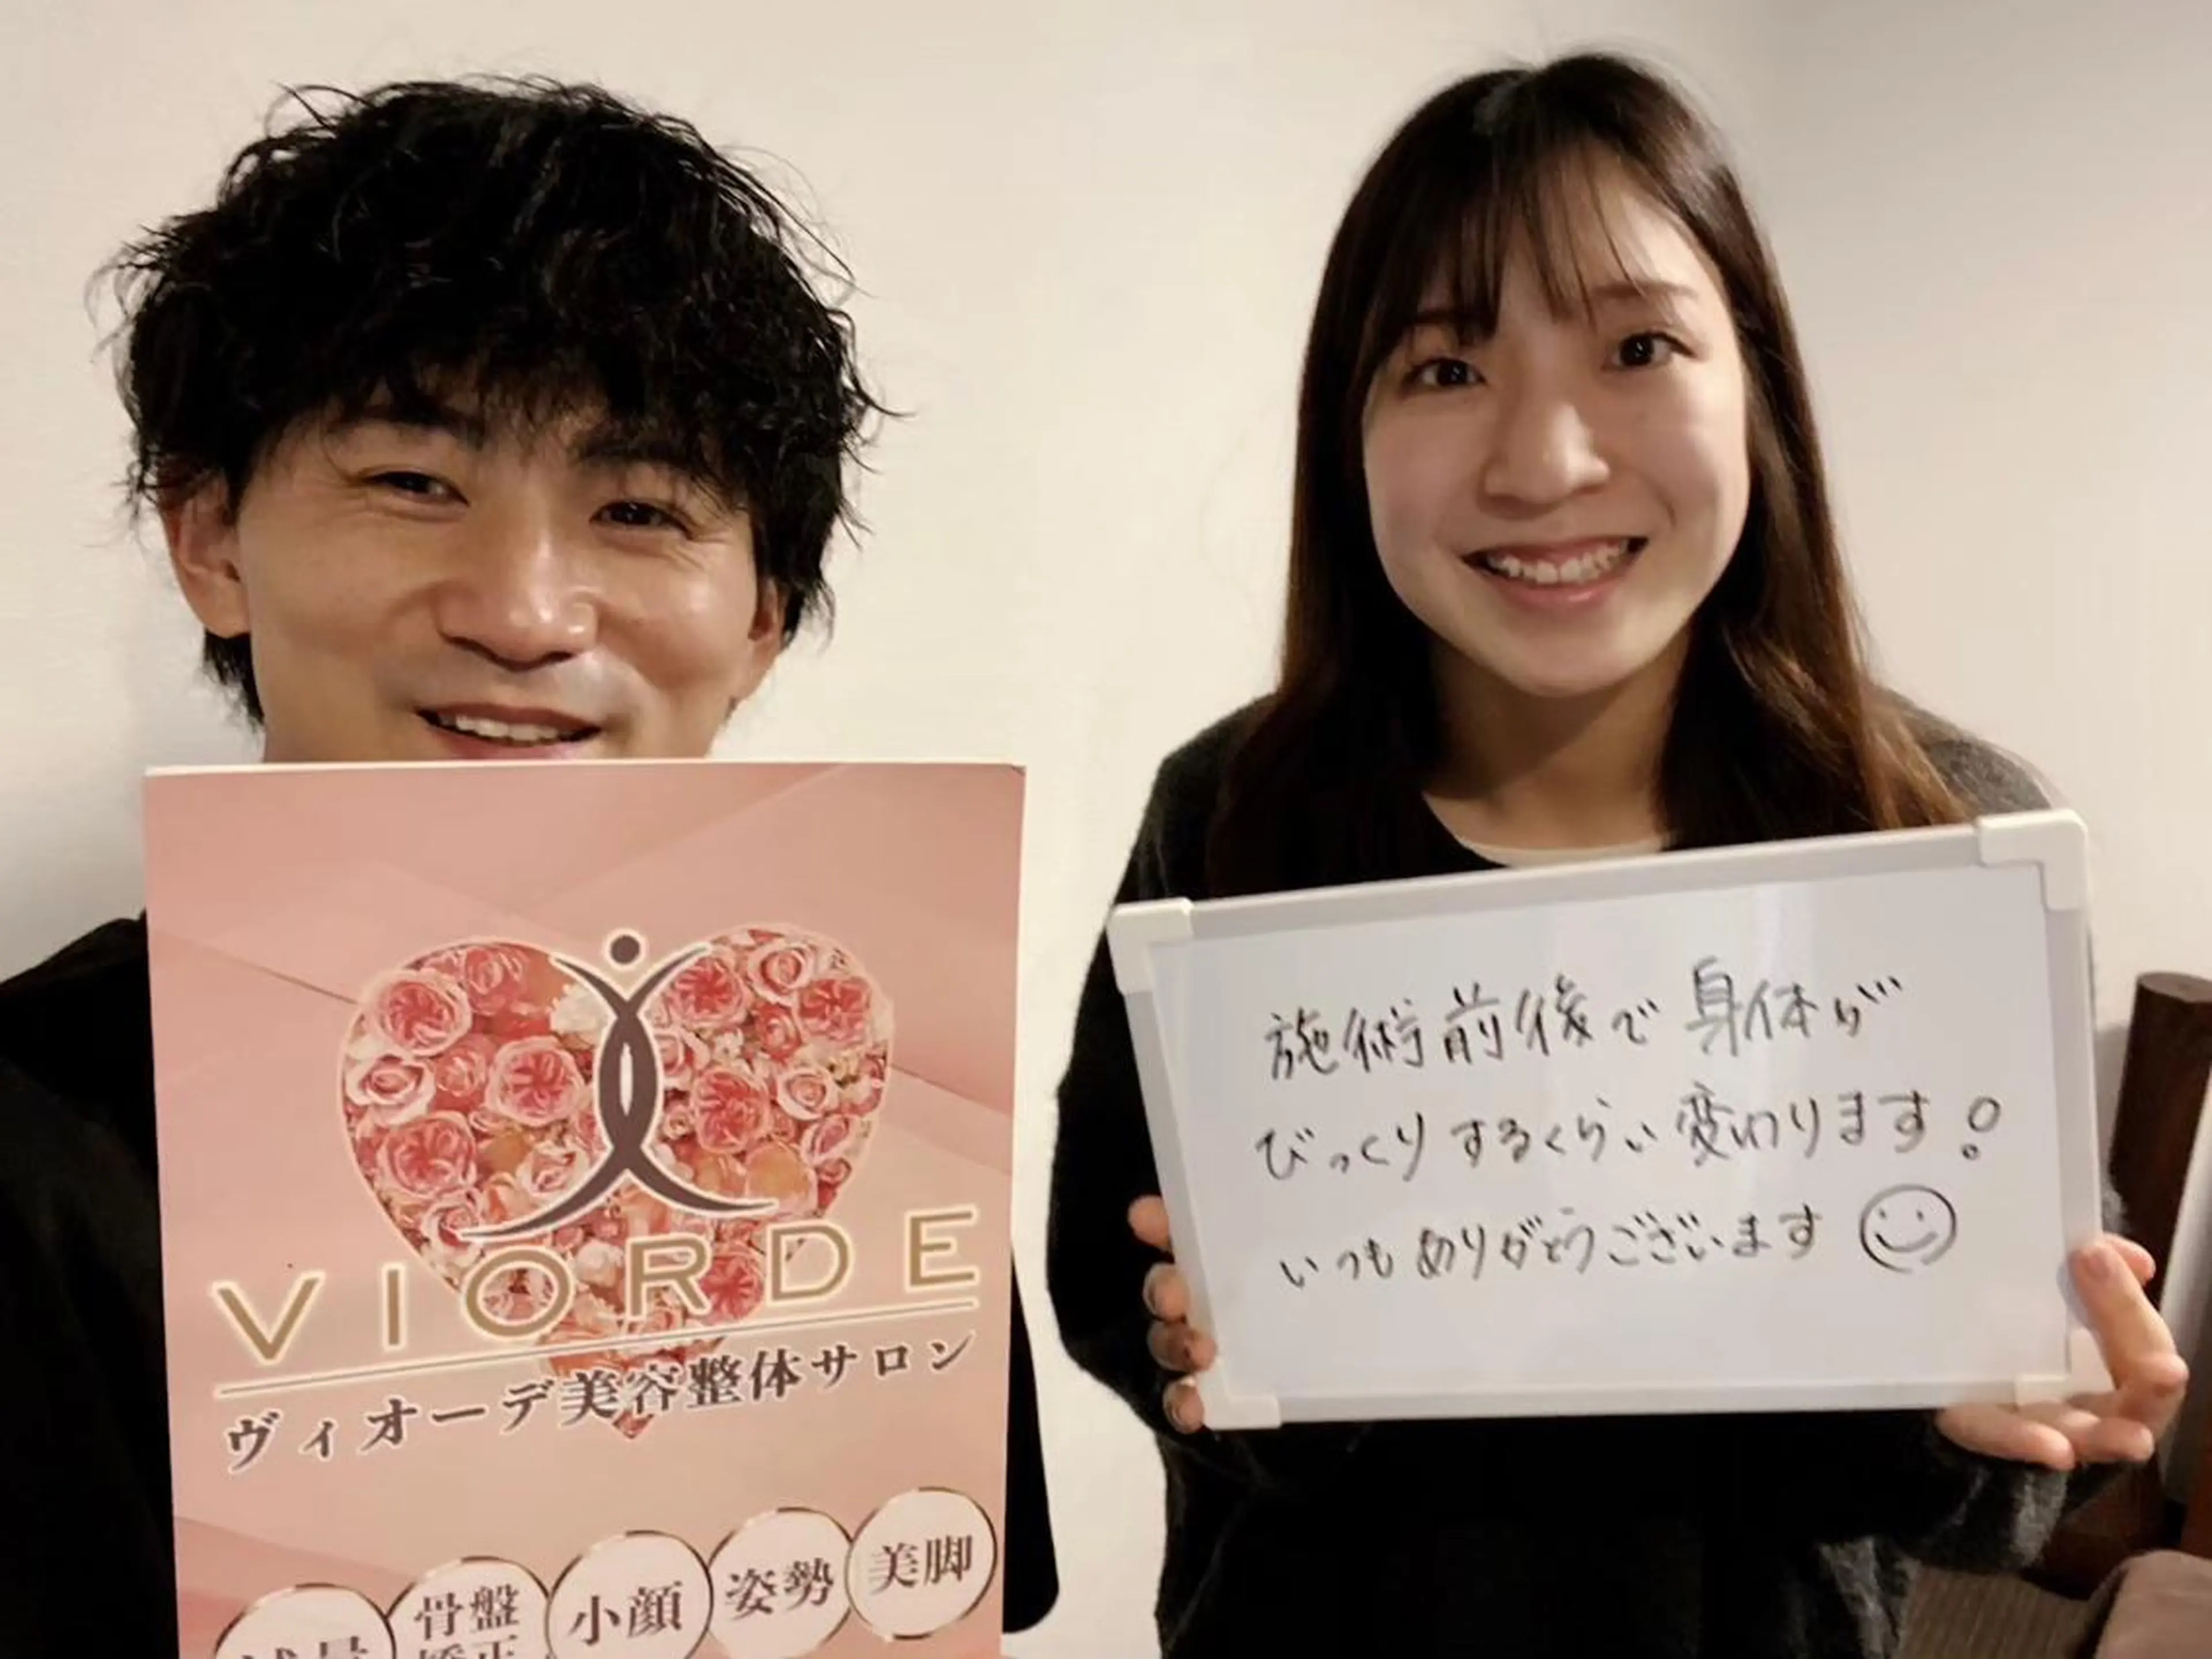 VIORDE
ヴィオーデ美容整体サロン
骨盤
矯正
小顔
姿勢
美脚
施術前後で身体が
びっくりするくらい変わります!
いつもありがとうございます